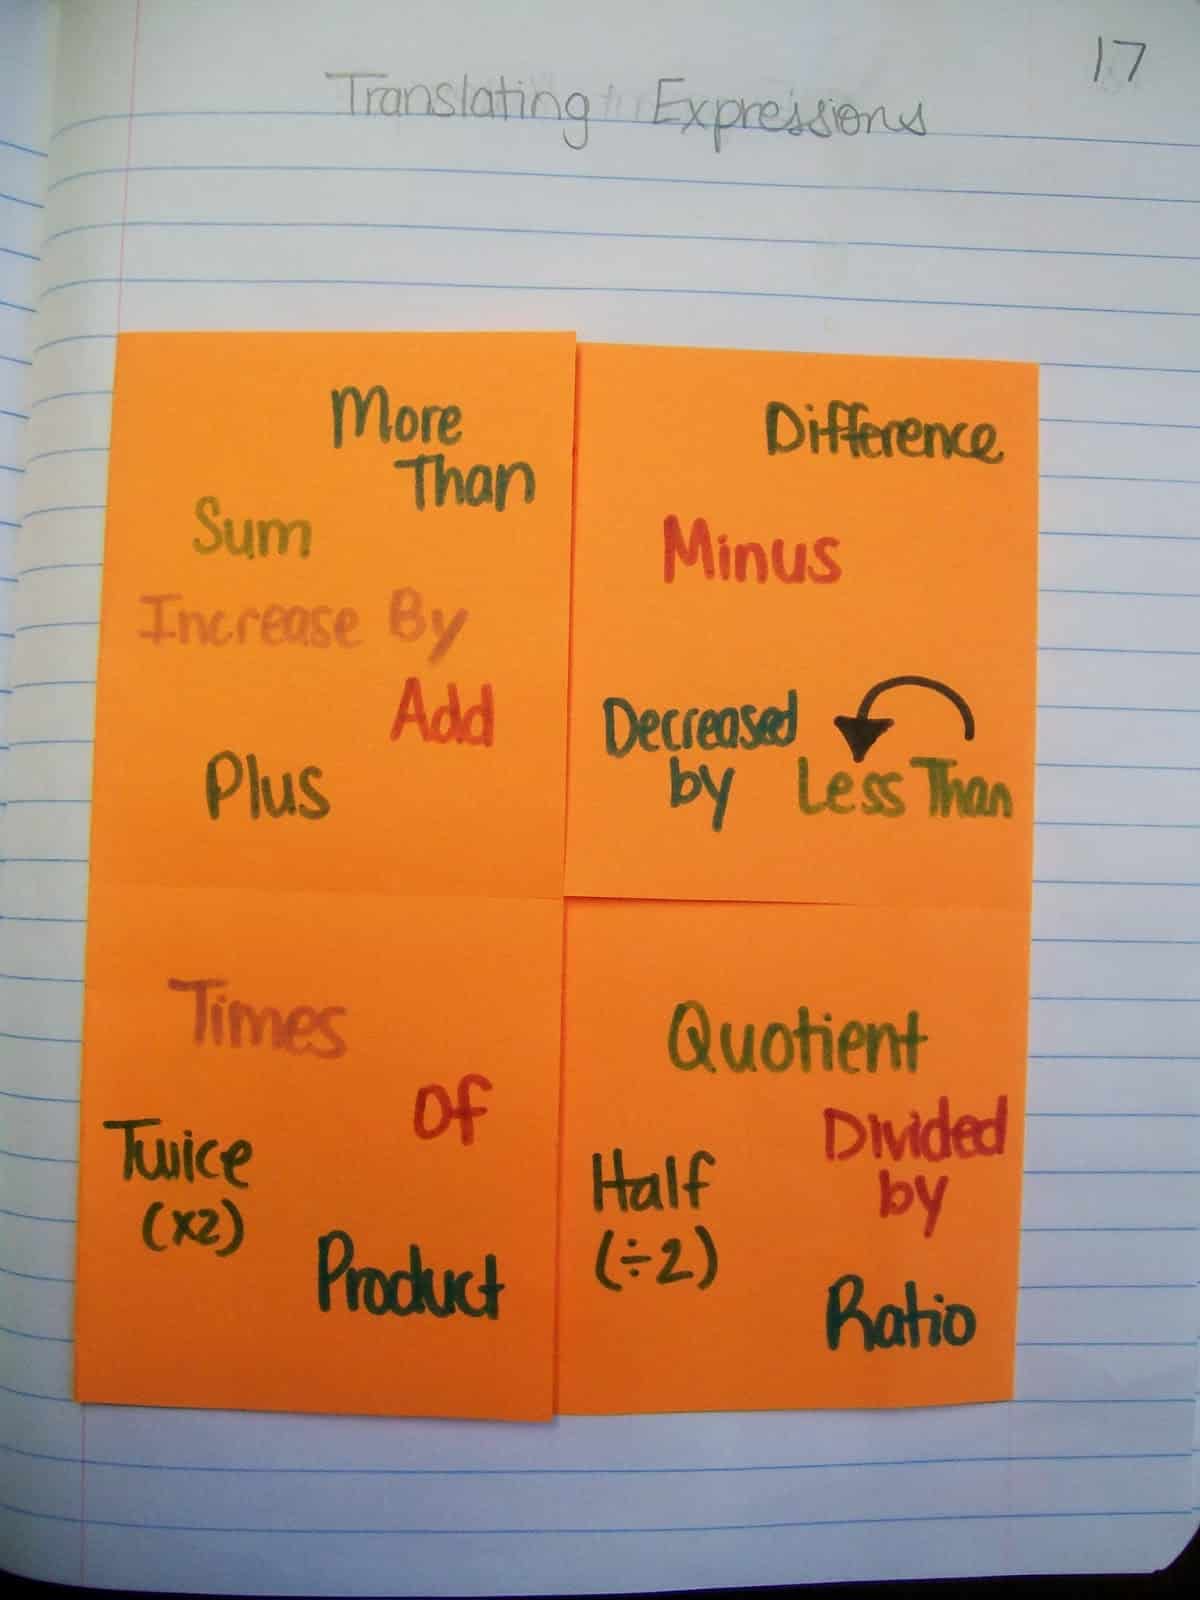 17
Translating Expressions
More
Than
Sum
Increase By
Add
Plus
Difference
Minus
Decreased
by
Less Than
Times
Of
Twice
(x2)
Product
Quotient
Divided
by
Half
(÷2)
Ratio